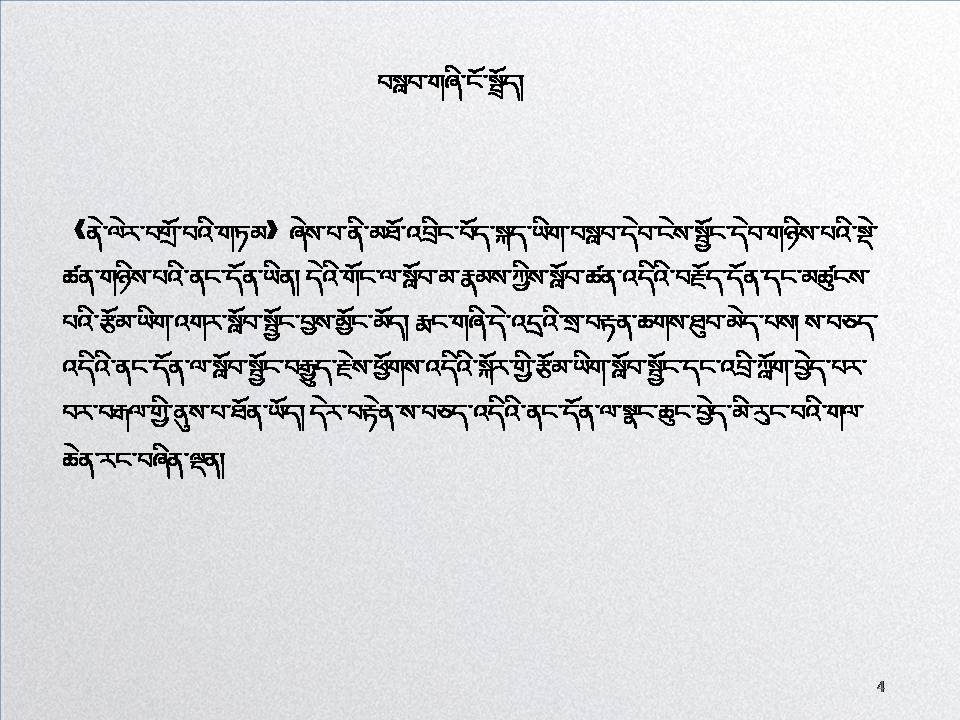 བསླབ་གཞི་ངོ་སྤྲོད།
《ནེ་ལེར་བགྲོ་བའི་གཏམ》ཞེས་པ་ནི་མཐོ་འབྲིང་བོད་སྐད་ཡིག་བསླབ་དེབ་ངེས་སྦྱོང་དེབ་གཉིས་པའི་སྡེ་
ཚན་གཉིས་པའི་ནང་དོན་ཡིན། དེའི་གོང་ལ་སློབ་མ་རྣམས་ཀྱིས་སློབ་ཚན་འདིའི་བརྗོད་དོན་དང་མཚུངས་
པའི་རྩོམ་ཡིག་འགར་སློབ་སྦྱོང་བྱས་མྱོང་མོད། རྨང་གཞི་དེ་འདྲའི་སྲ་བརྟན་ཆགས་ཐུབ་མེད་པས། ས་བཅད་
འདིའི་ནང་དོན་ལ་སློབ་སྦྱོང་བརྒྱུད་རྗེས་ཕྱོགས་འདིའི་སྐོར་གྱི་རྩོམ་ཡིག་སློབ་སྦྱོང་དང་འབྲི་ཀློག་བྱེད་པར་
པར་བརྒལ་གྱི་ནུས་པ་ཐོན་ཡོད། དེར་བརྟེན་ས་བཅད་འདིའི་ནང་དོན་ལ་སྣང་ཆུང་བྱེད་མི་རུང་བའི་གལ་
ཆེན་རང་བཞིན་ལྡན།
4